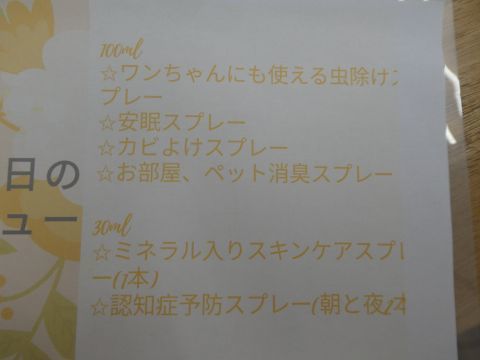 100ml
☆ワンちゃんにも使える虫除けス
プレー
☆安眠スプレー
☆カビよけスプレー
☆お部屋、ペット消臭スプレー
日の
ュー
30ml
☆ミネラル入りスキンケアスプレ
ー(1本)
☆認知症予防スプレー(朝と夜2本